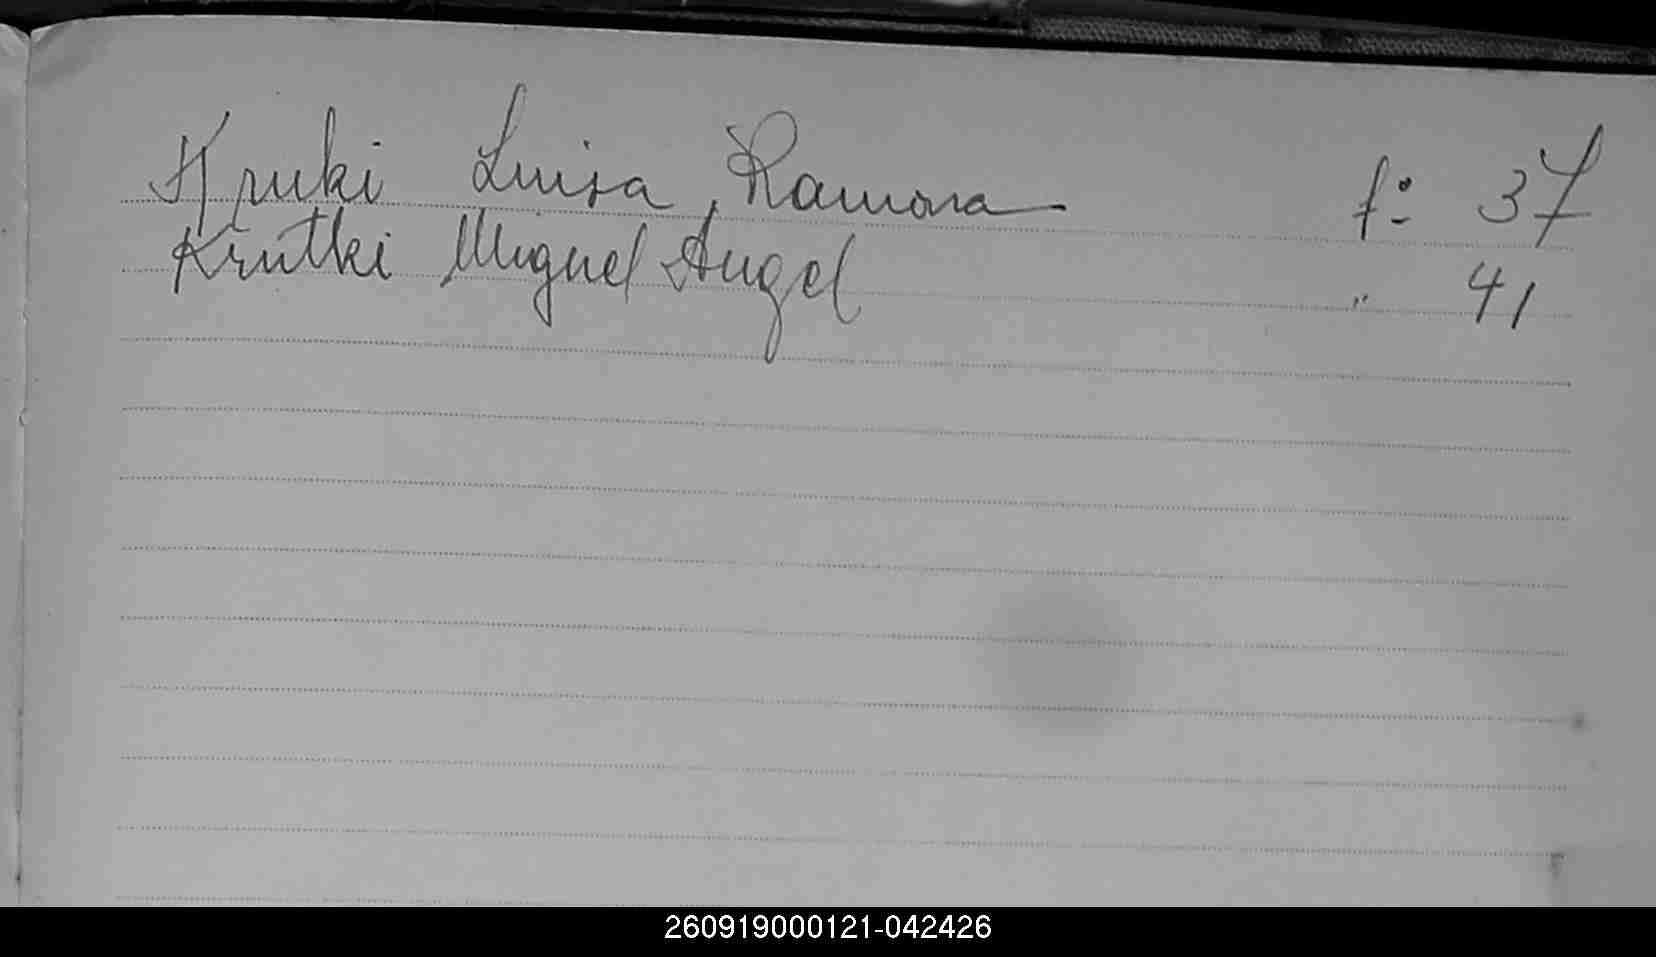 Kruki Luisa Ramona f:º 37
Krutki Miguel Angel " 41
260919000121-042426